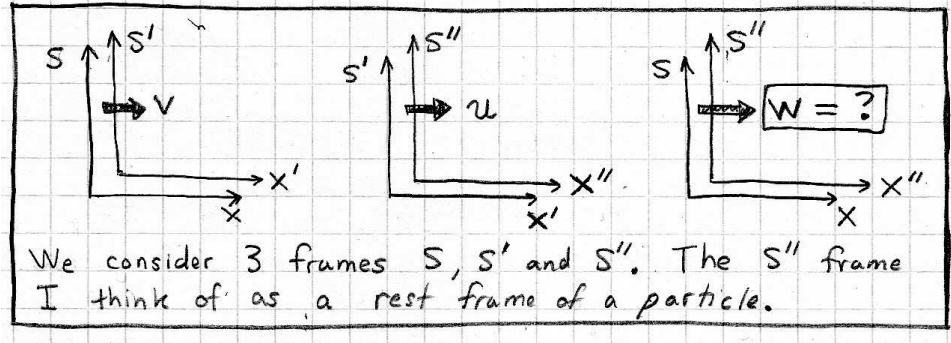 S S′ S′ S″ S S″
V u W = ?
X′ X″ X″
X X′ X
We consider 3 frames S, S′ and S″. The S″ frame
I think of as a rest frame of a particle.